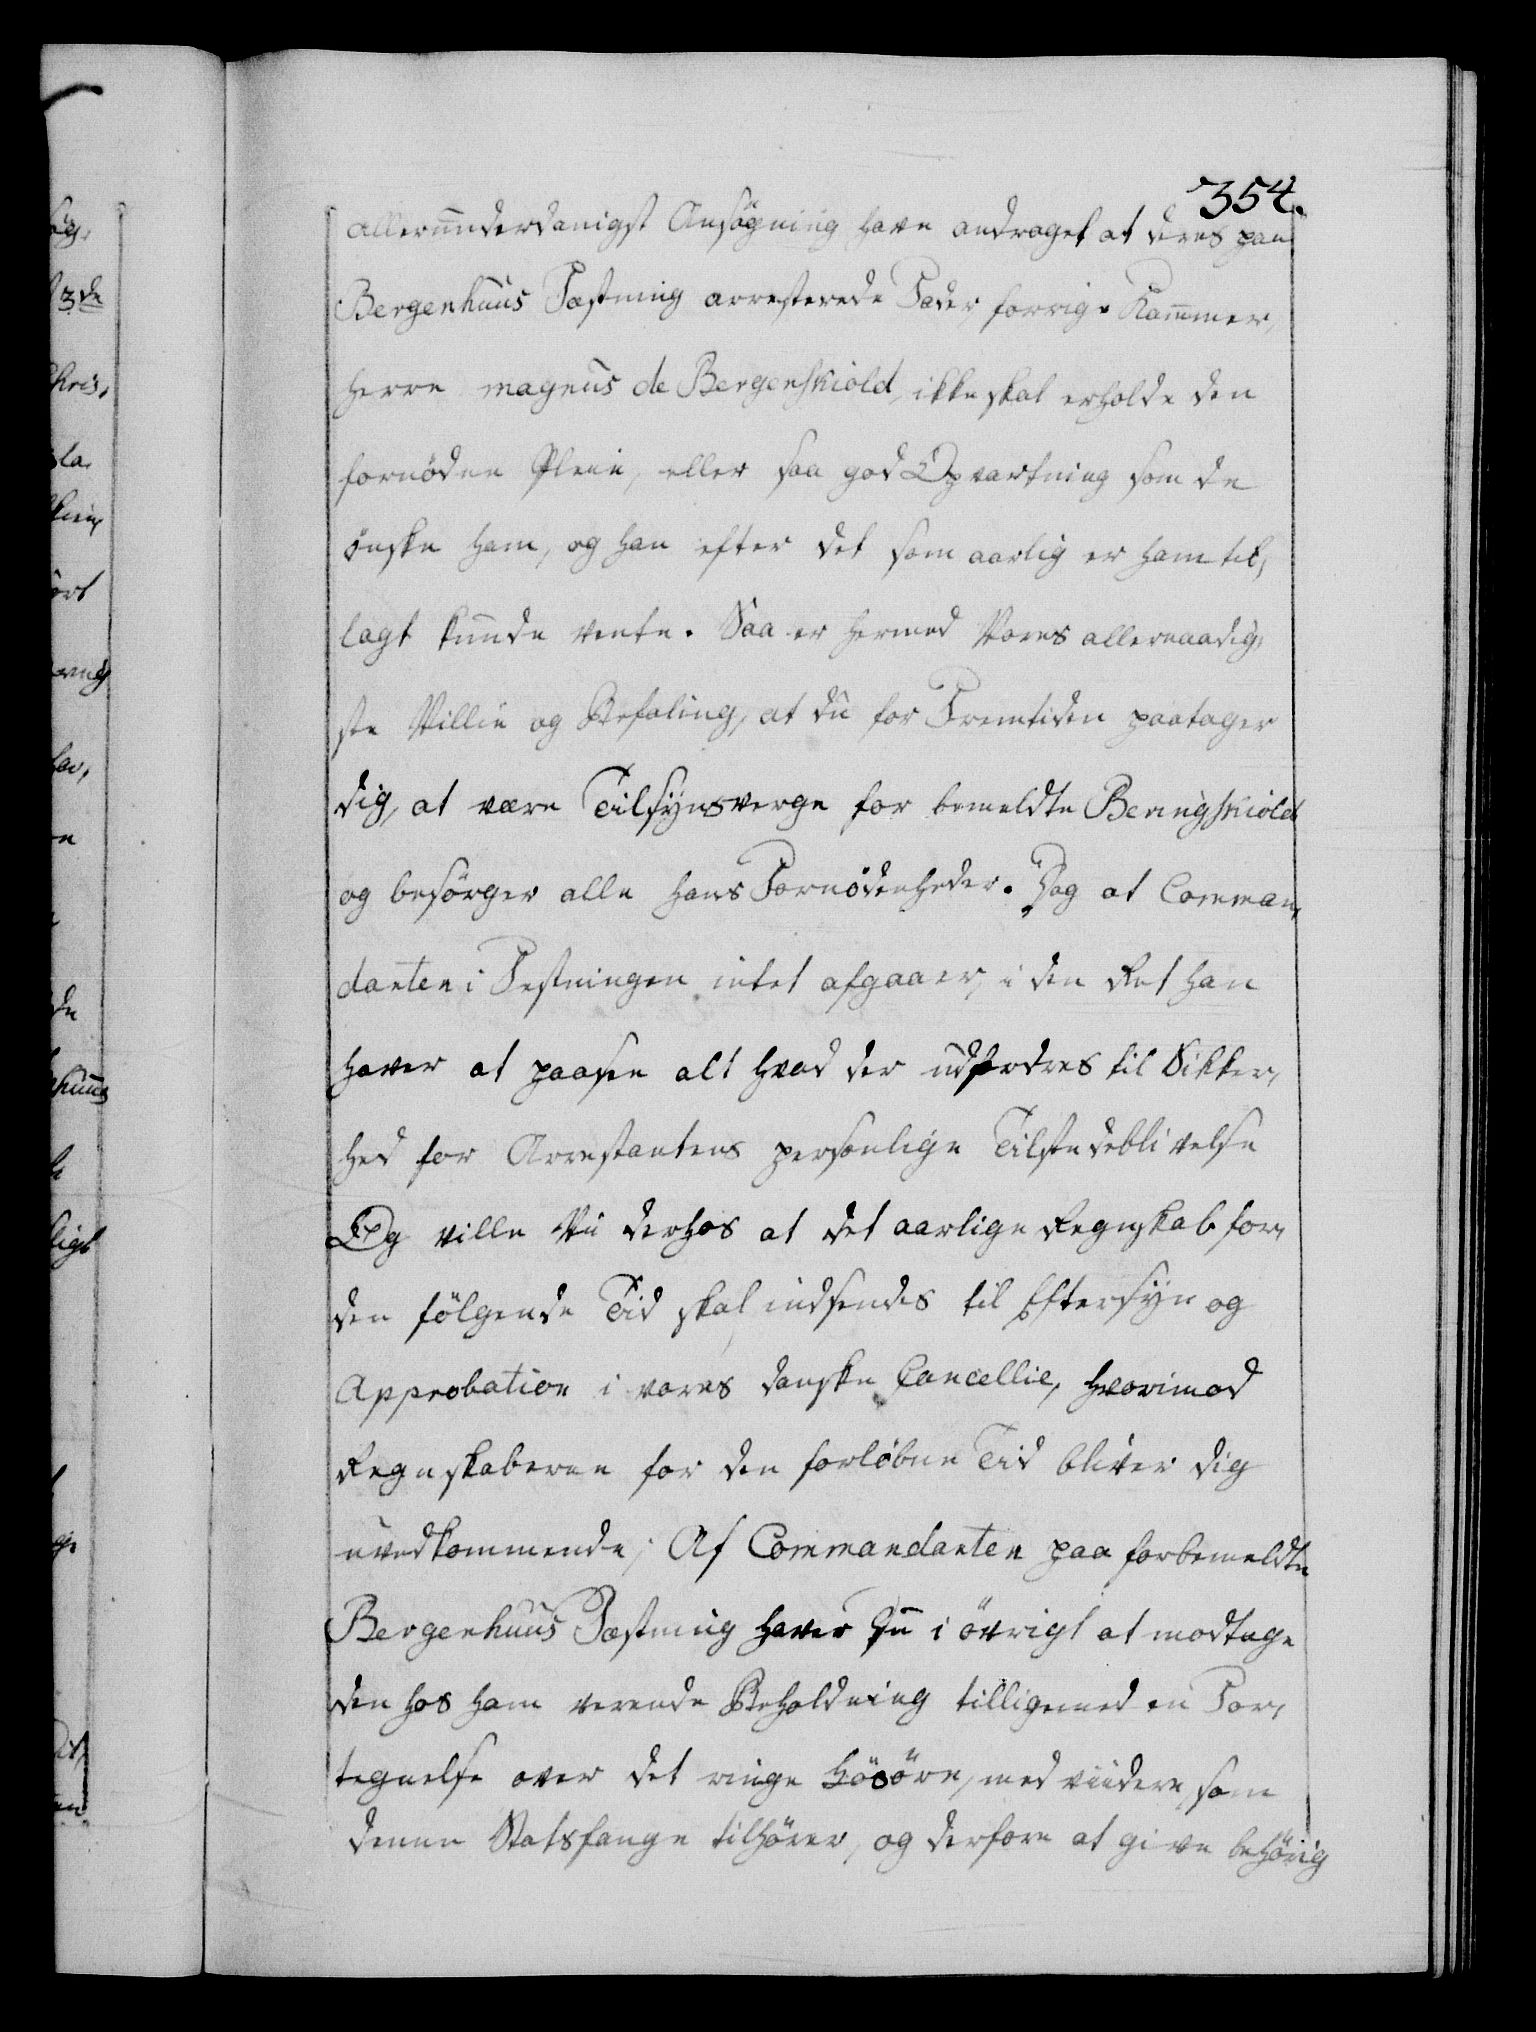 354.
allerunderdanigst Ansøgning have andraget at deres paa
Bergenhuus Fæstning arresterede Fader, forrige Kammer,
herre magnus de Bergenskiold, ikke skal erholde den
fornødne Pleie, eller saa god Opvartning som de
ønske ham, og han efter det som aarlig er ham til,
lagt kunde vente. Saa er hermed Vores allernaadig,
ste Villie og Befaling, at du for Fremtiden paatager
dig, at være Tilsynsverge for bemeldte Beringskiold
og besørger alle hans Fornødenheder. Dog at Comman,
danten i Festningen intet afgaaer, i den Ret han
haver at paasee alt hvad der udfordres til Sikker,
hed for Arrestantens personlige Tilstedeblivelse
Og ville Vii derhos at det aarlige Regnskab for,
den følgende Tid skal indsendes til Eftersyn og
Approbation i vores danske Cancellie, hvorimod
Regnskaberne for den forløbne Tid bliver dig
uvedkommende; Af Commandanten paa forbemeldte
Bergenhuus Fæstning haver du i øvrigt at modtage
den hos ham verende Beholdning tilligemed en For,
tegnelse over det ringe Løsøre, med viidere, som
denne Statsfange tilhører, og derfore at give behørig